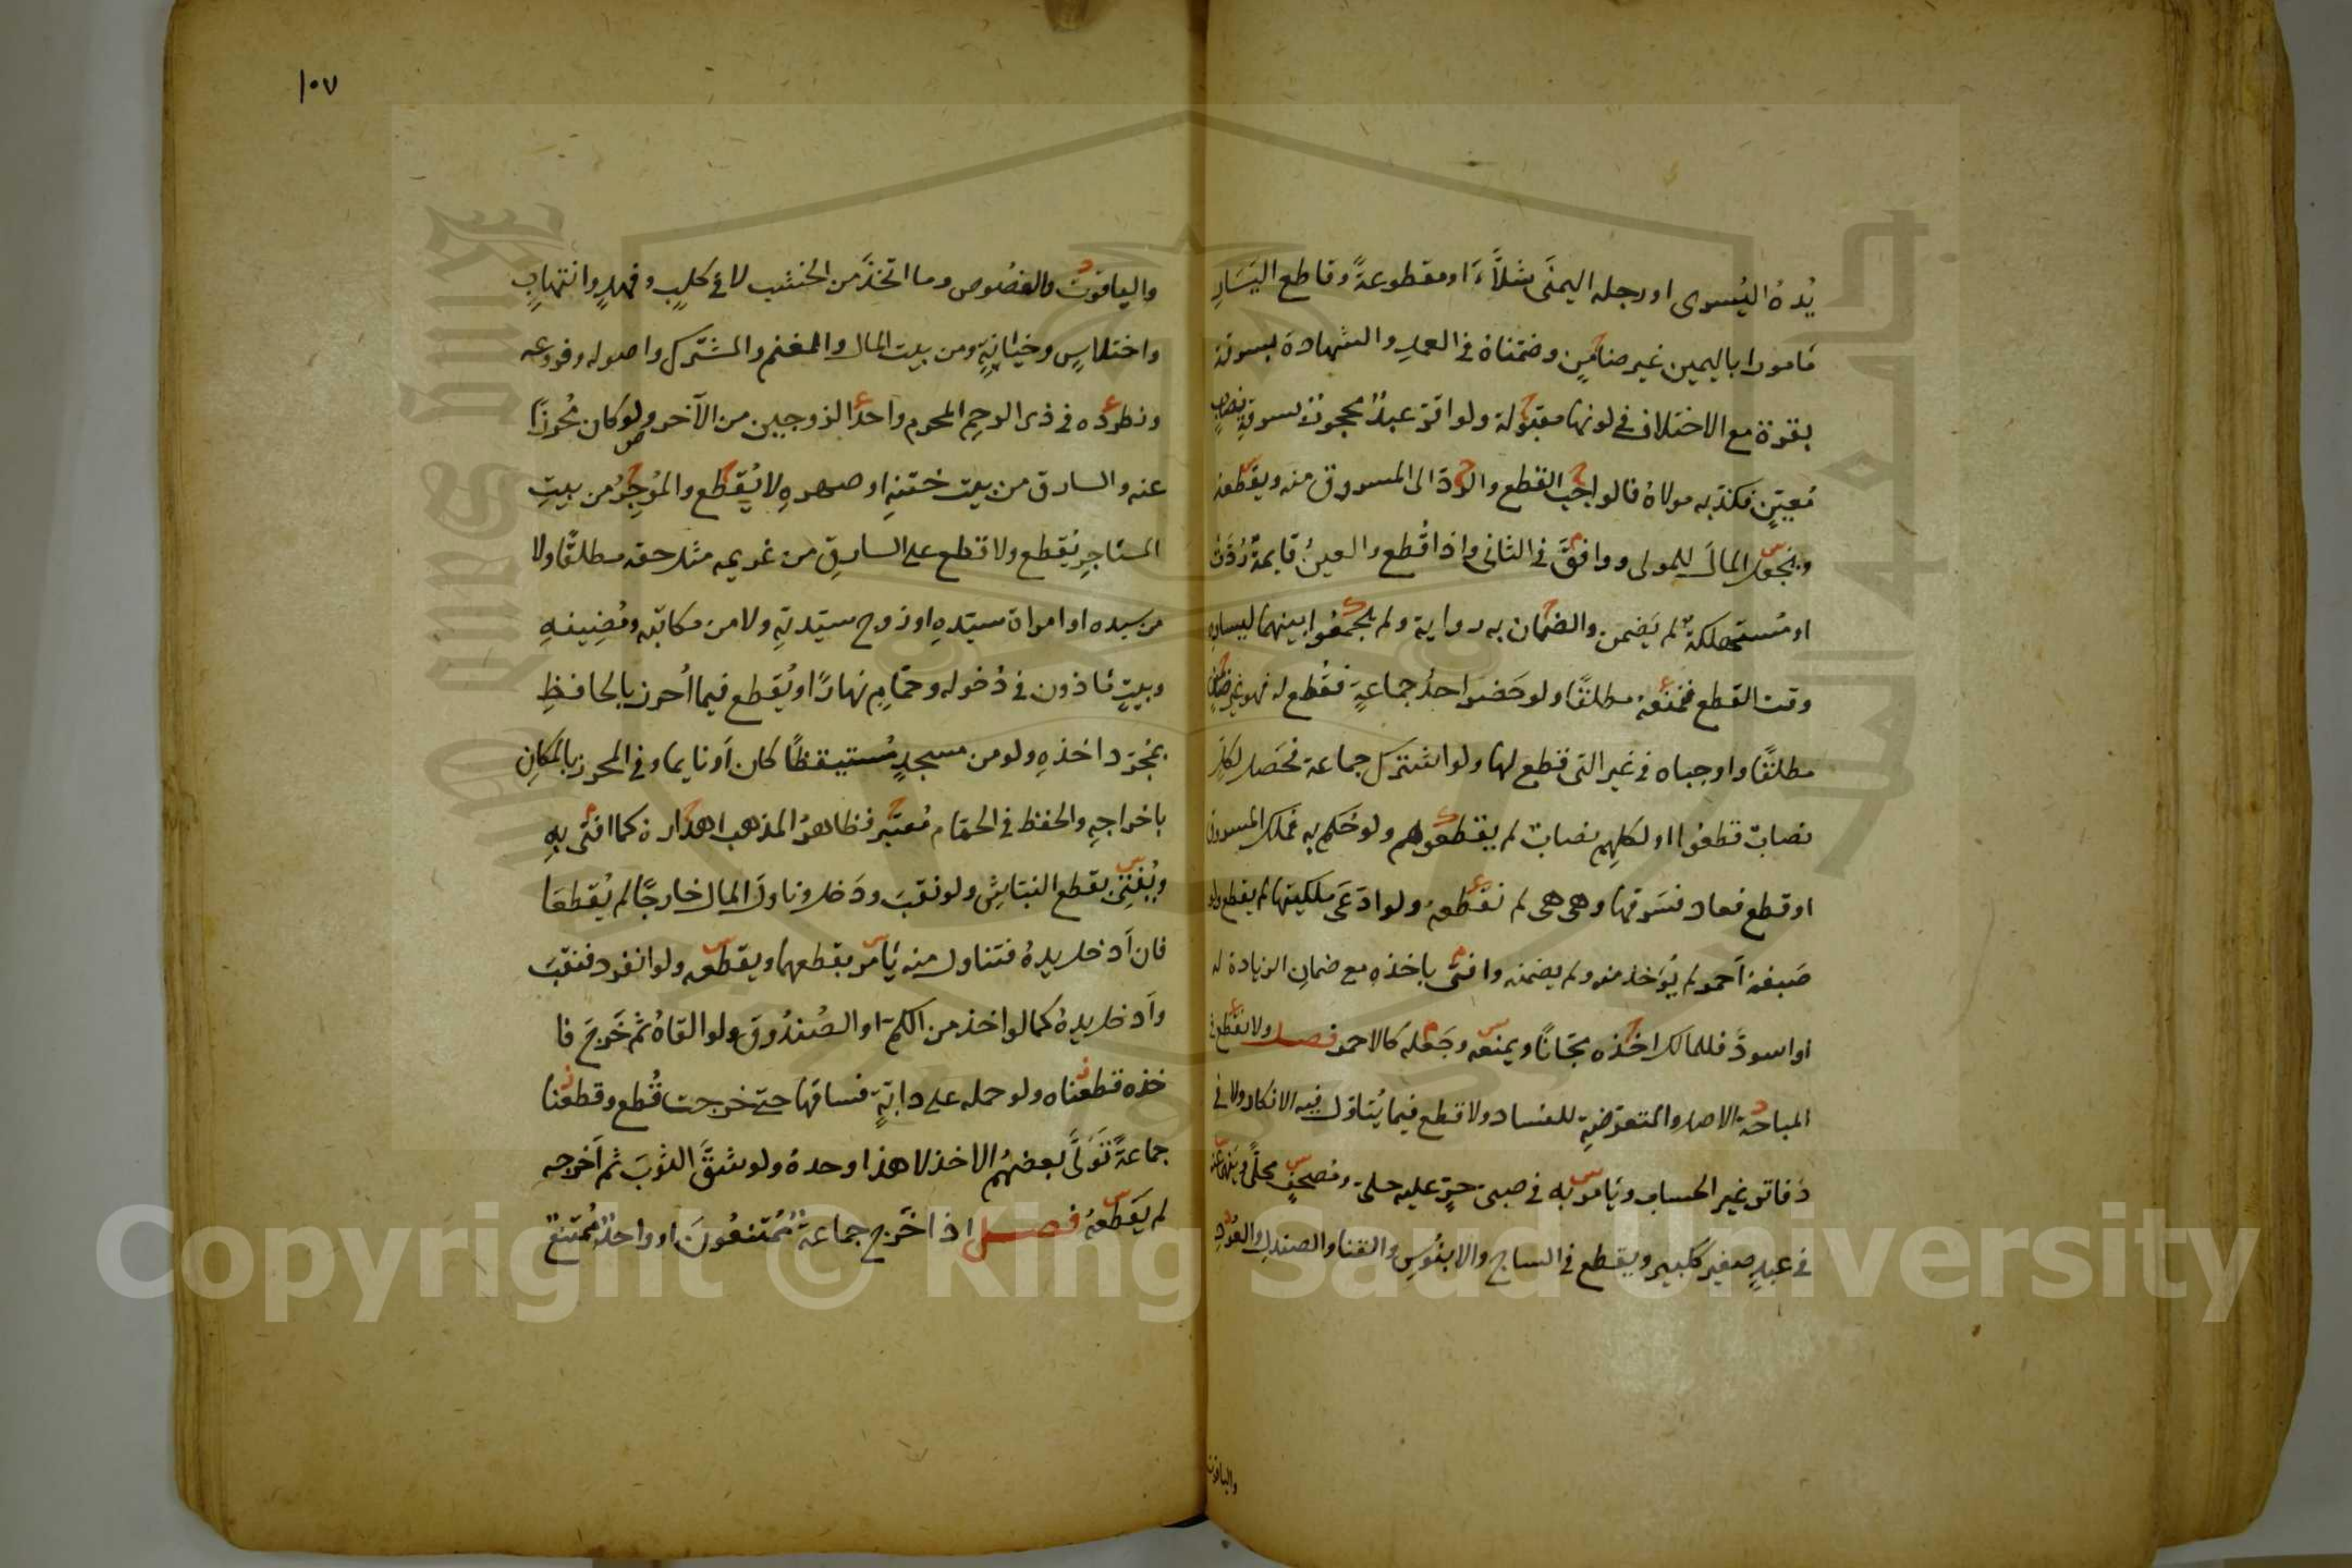 يده اليسرى او رجله اليمنى شلاء او مقطوعة وقاطع اليسار
مامورا باليمين غير ضامن وضمناه في العمد والشهادة بسرقة
بقرة مع الاختلاف في لونها مقبولة ولو اقر عبد محجور بسرقة نصاب
معين فكذبه مولاه فالواجب القطع والرد الى المسروق منه ويقطعه
ويجعل المال للمولى ووافق في الثاني واذا قطع والعين قايمة ردت
او مستهلكة لم يضمن والضمان به رواية ولم يجمعوا بينهما ليساره
وقت القطع فمنعه مطلقا ولو حضر احد جماعة فقطع له فهو غير ضامن
مطلقا واوجباه في غير التي قطع لها ولو اشترك جماعة فحصل لكل
نصاب قطعوا او لكلهم نصاب لم يقطعوهم ولو حكم به فملك المسروق
او قطع فعاد فسرقها وهي هي لم نقطعه ولو ادعى ملكيتها لم يقطع ولو
صبغه احمر لم يؤخذ منه ولم يضمنه وافتى باخذه مع ضمان الزيادة له
او اسود فللمالك اخذه مجانا ويمنعه وجعله كالاحمر فصل ولا نقطع في
المباحة الاصل والمتعرضة للفساد ولا قطع فيما يتاول فيه الانكار ولا في
دفاتر غير الحساب ويامر به في صبي حر عليه حلي ومصحف محلى
في عبد صغير ككبير ويقطع في الساج والابنوس والقنا والصندل والعود
والياقوت
١٠٧
والياقوت والفصوص وما اتخذ من الخشب لا في كلب وفهد وانتهاب
واختلاس وخيانة ومن بيت المال والمغنم والمشترك واصوله وفروعه
ونطرده في ذي الرحم المحرم واحد الزوجين من الآخر ولو كان محرزا
عنه والسارق من بيت ختنه او صهره لا يقطع والموجر من بيت
المستاجر يقطع ولا قطع على السارق من غريمه مثل حقه مطلقا ولا
من سيده او امراة سيده او زوج سيدته ولا من مكاتبه ومضيفه
وبيت ماذون في دخوله وحمام نهارا ويقطع فيما احرز بالحافظ
بمجرد اخذه ولو من مسجد مستيقظا كان او نايما وفي المحرز بالمكان
باخراجه والحفظ في الحمام معتبر فظاهر المذهب اهداره كما افتى به
ويفتي بقطع النباش ولو نقب ودخل وناول المال خارجا لم يقطعا
فان ادخل يده فتناول منه يامر بقطعهما ويقطعه ولو انفرد فنقب
وادخل يده كما لو اخذ من الكم او الصندوق ولو القاه ثم خرج فا
خذه قطعناه ولو حمله على دابة فساقها حتى خرجت قطع وقطعنا
جماعة تولى بعضهم الاخذ لا هذا وحده ولو شق الثوب ثم اخرجه
لم يقطعه فصل اذا خرج جماعة ممتنعون او واحد ممتنع
Copyright © King Saud University